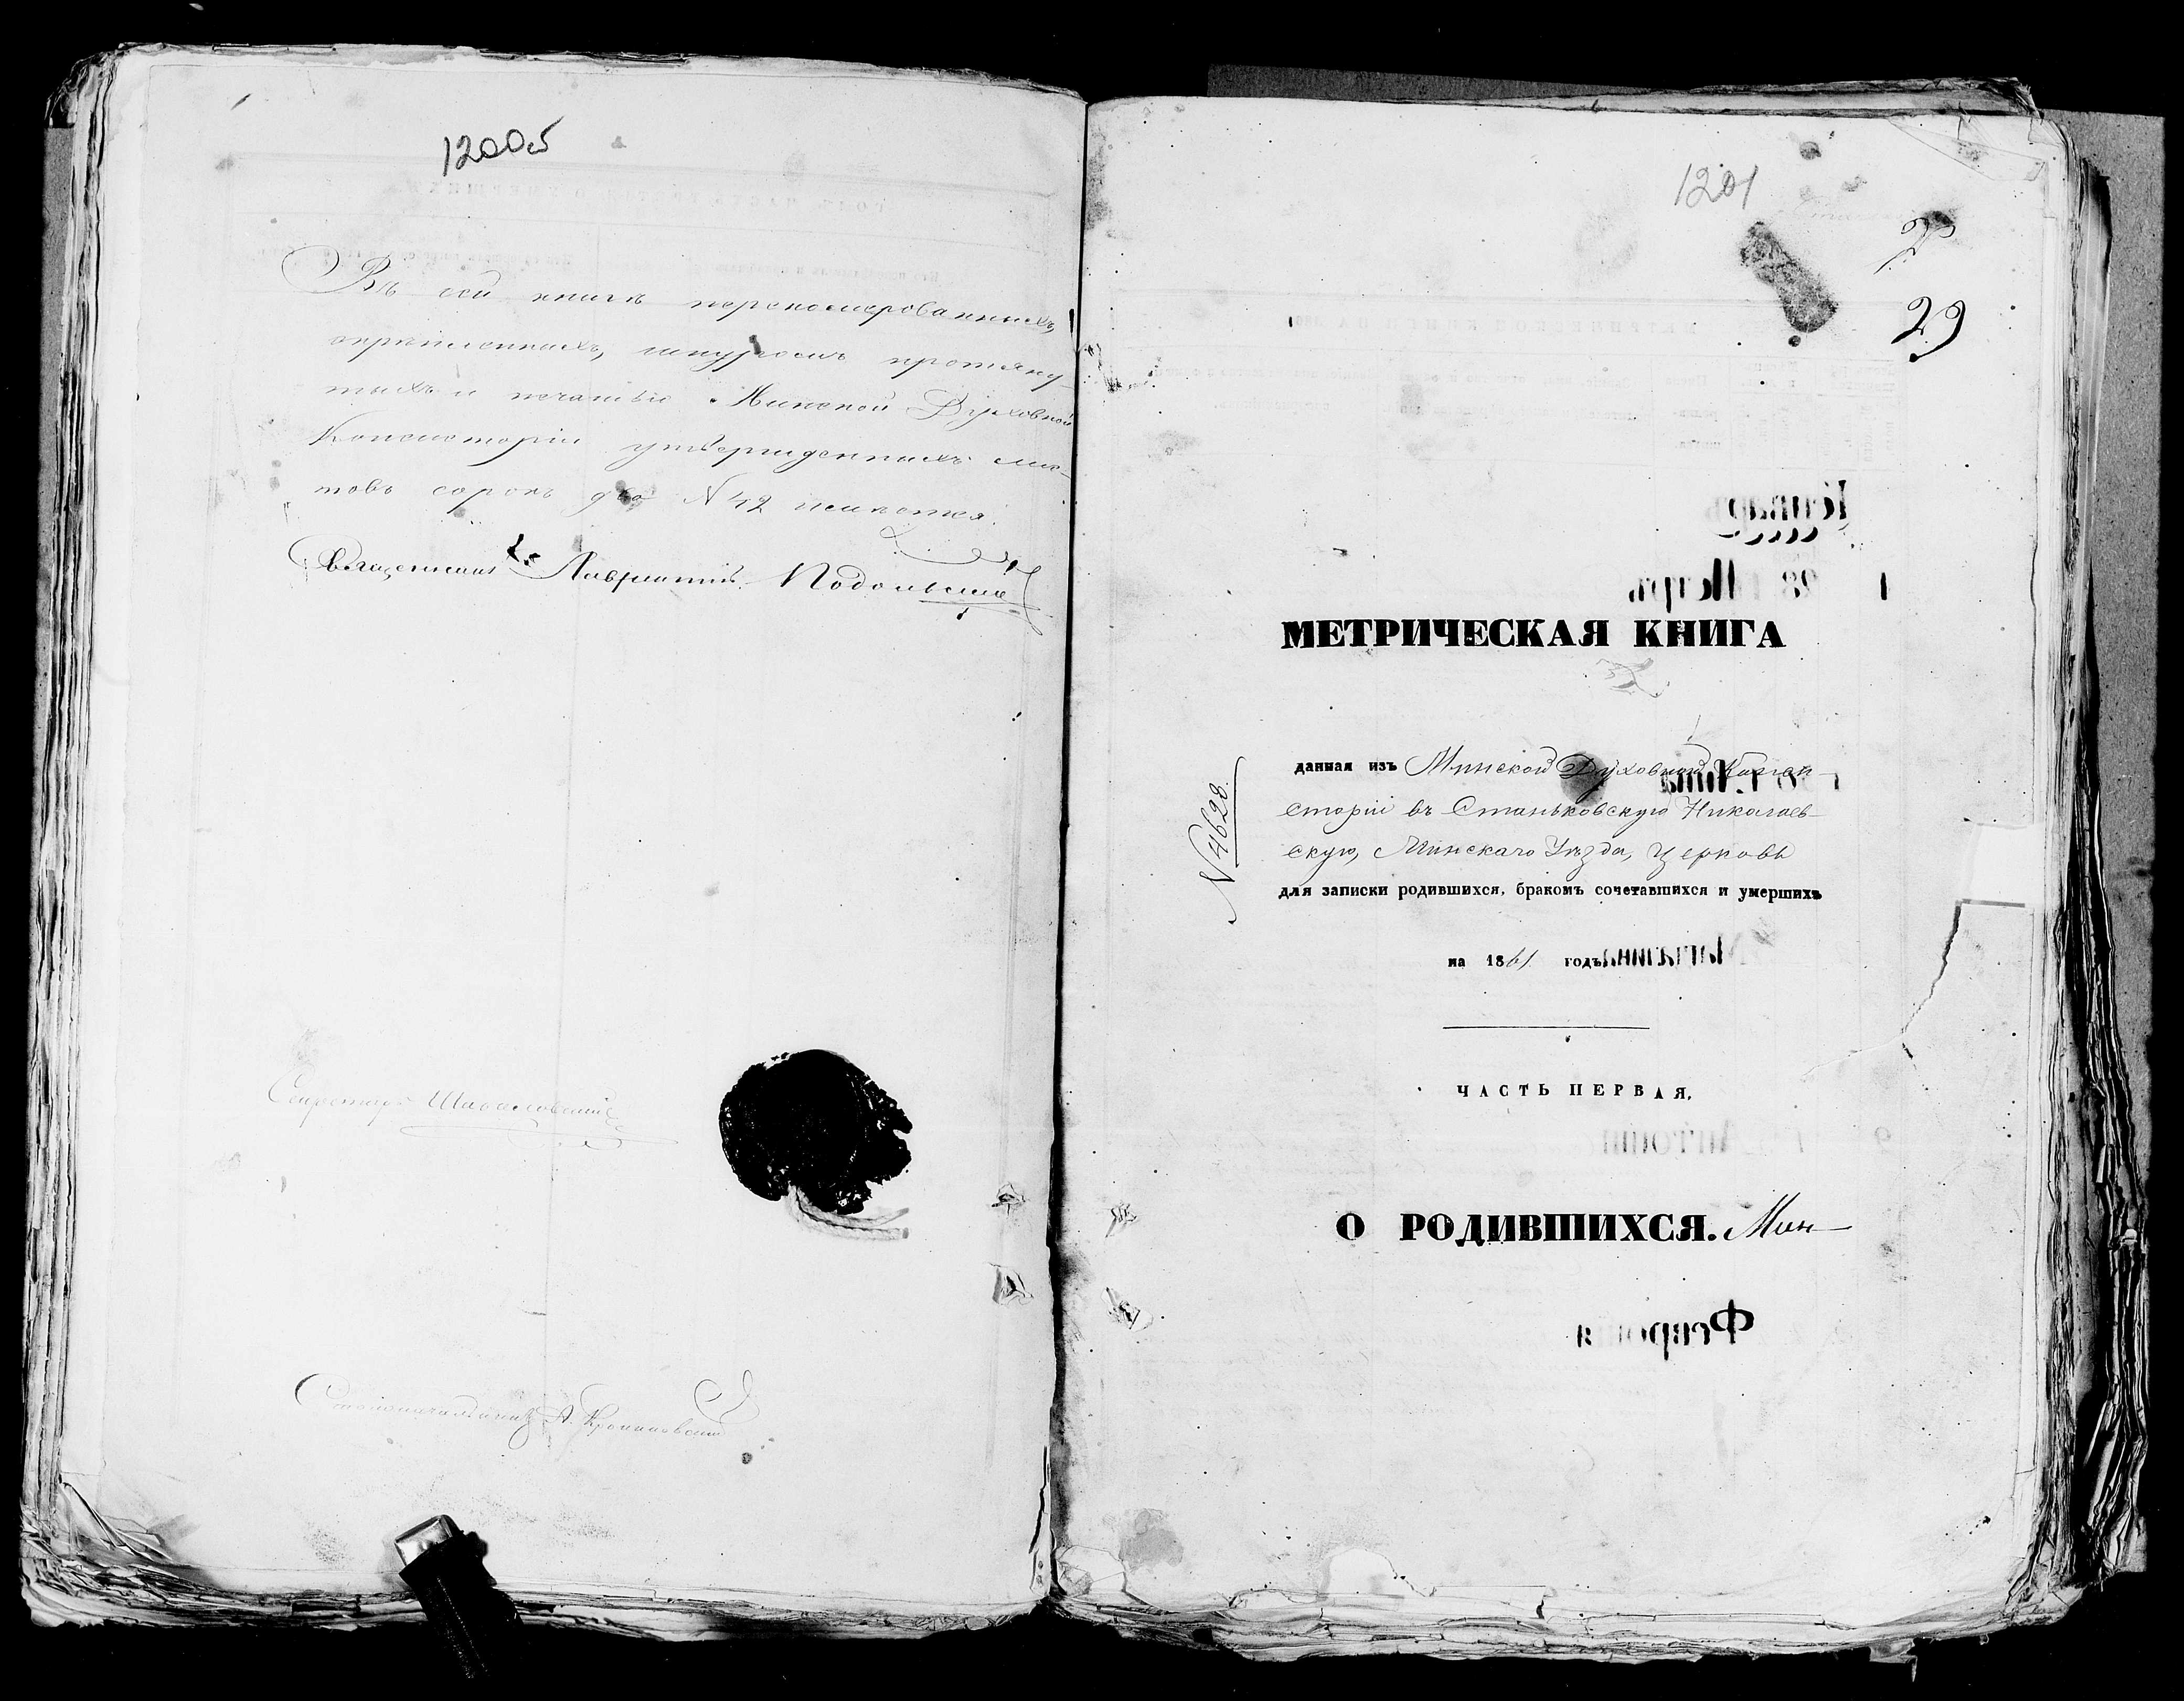 1200об
Въ сей книгѣ переномерованныхъ,
скрѣпленныхъ, шнуромъ протяну-
тыхъ и печатью Минской Духовной
Консисторіи утвержденныхъ лис-
товъ сорокъ два № 42 имѣется.
Священникъ Лаврентій Подольскій
Секретарь
Столоначальникъ А.
1201
29
МЕТРИЧЕСКАЯ КНИГА
данная изъ Минской Духовной Консис-
сторіи въ Станьковскую Николаев-
скую, Минскаго Уѣзда, церковь
№ 4628.
для записки родившихся, бракомъ сочетавшихся и умершихъ
на 1861 годъ
ЧАСТЬ ПЕРВАЯ.
О РОДИВШИХСЯ. Мин